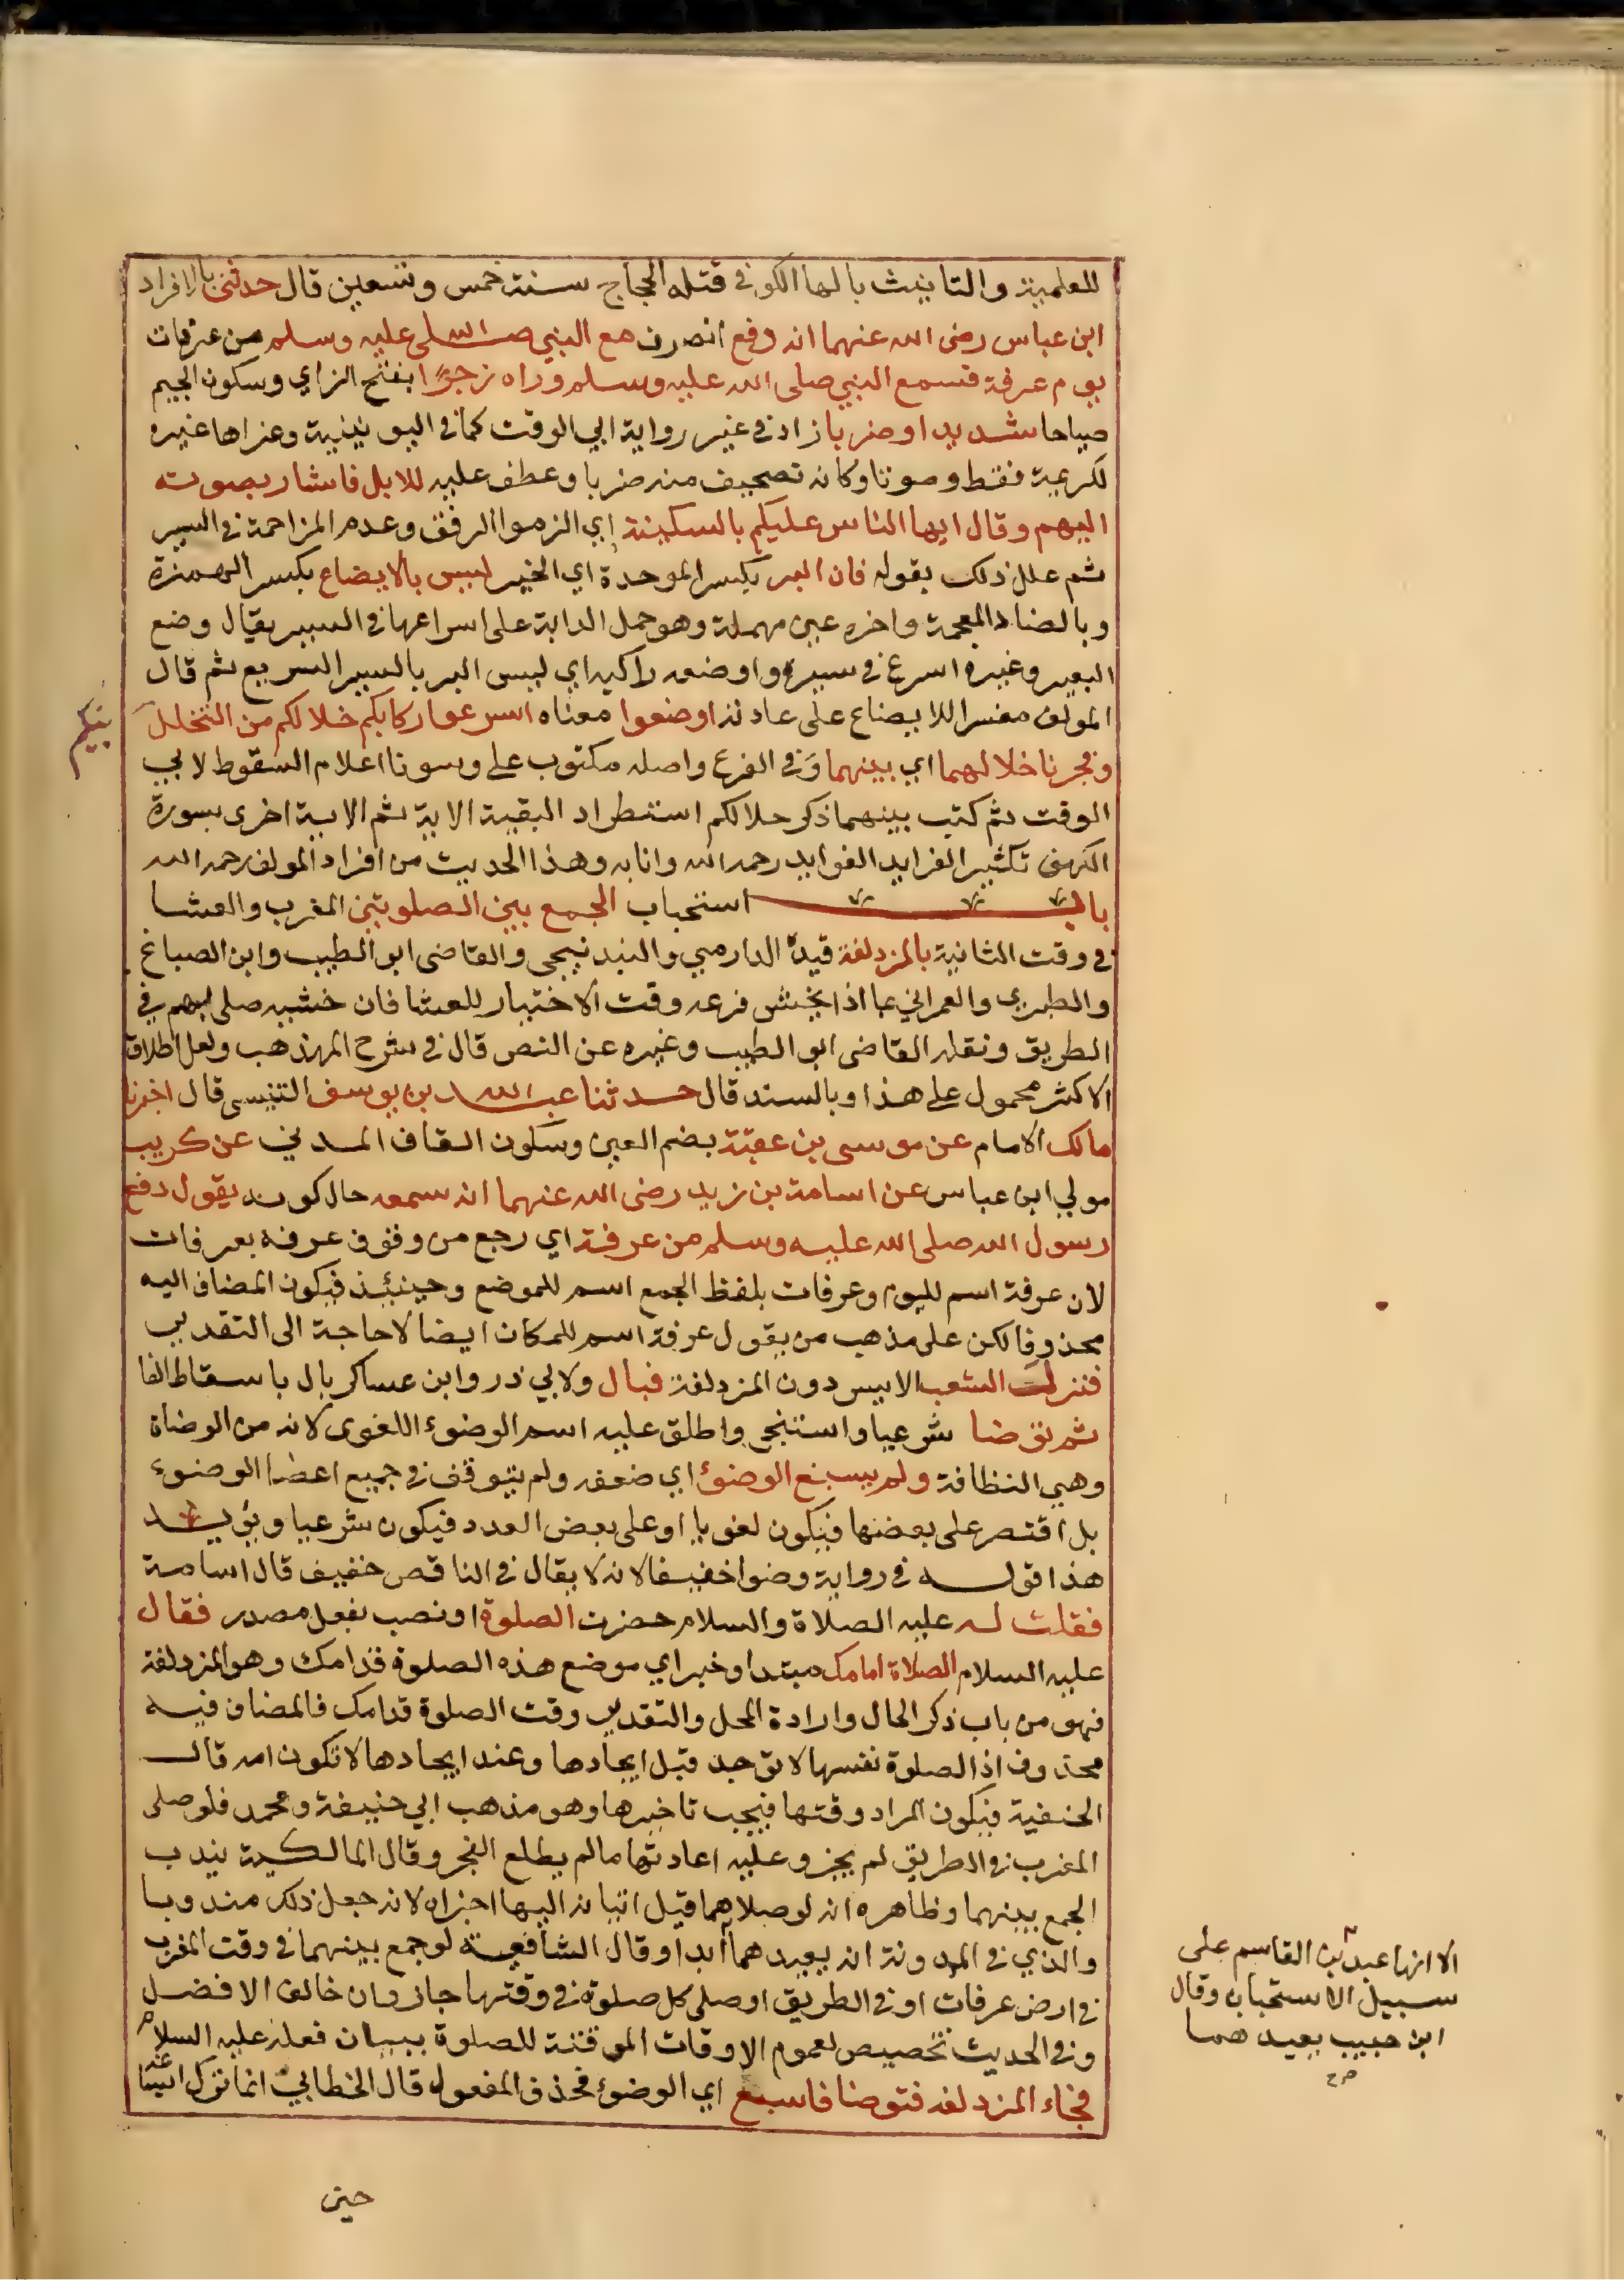 للعلمية والتانيث بالها الكوفي قتله الحجاج سنة خمس وتسعين قال حدثني بالافراد
ابن عباس رضي الله عنهما انه دفع انصرف مع النبي صلى الله عليه وسلم من عرفات
يوم عرفة فسمع النبي صلى الله عليه وسلم وراه زجرا بفتح الزاي وسكون الجيم
صياحا شديدا وضربا زاد في غير رواية ابي الوقت كما في اليونينية وعزاها غيره
لكريمة فقط وصوتا وكانه تصحيف من ضربا وعطف عليه للابل فاشار بصوته
اليهم وقال ايها الناس عليكم بالسكينة اي الزموا الرفق وعدم المزاحمة في السير
ثم علل ذلك بقوله فان البر بكسر الموحدة اي الخير ليس بالايضاع بكسر الهمزة
وبالضاد المعجمة واخره عين مهملة وهو حمل الدابة على اسراعها في السير يقال وضع
البعير وغيره اسرع في سيره واوضعه راكبه اي ليس البر بالسير السريع ثم قال
المولف مفسرا للايضاع على عادته اوضعوا معناه اسرعوا ركابكم خلالكم من التخلل
بينكم
وفجرنا خلالهما اي بينهما وفي الفرع واصله مكتوب على وسونا اعلام السقوط لابي
الوقت ثم كتب بينهما ذكر خلالكم استطراد البقية الاية ثم الاية اخرى بسورة
الكهف تكثير الفرايد الفوايد رحمه الله واثابه وهذا الحديث من افراد المولف رحمه الله
باب استحباب الجمع بين الصلوتين المغرب والعشا
في وقت الثانية بالمزدلفة قيده الدارمي والبندنيجي والقاضي ابو الطيب وابن الصباغ
والطبري والعمراني بما اذا لم يخش فرعه وقت الاختيار للعشا فان خشيه صلى بهم في
الطريق ونقله القاضي ابو الطيب وغيره عن النص قال في شرح المهذهب ولعل اطلاق
الاكثر محمول على هذا وبالسند قال حدثنا عبد الله بن يوسف التنيسي قال اخبرنا
مالك الامام عن موسى بن عقبة بضم العين وسكون القاف المدني عن كريب
مولي ابن عباس عن اسامة بن زيد رضي الله عنهما انه سمعه حال كونه يقول دفع
رسول الله صلى الله عليه وسلم من عرفة اي رجع من وقوف عرفه بعرفات
لان عرفة اسم لليوم وعرفات بلفظ الجمع اسم للموضع وحينئذ فيكون المضاف اليه
محذوفا لكن على مذهب من يقول عرفة اسم للمكان ايضا لا حاجة الى التقدير
فنزل الشعب الايسر دون المزدلفة فبال ولابي ذر وابن عساكر بال باسقاط الفا
ثم توضا شرعيا واستنجى واطلق عليه اسم الوضوء اللغوى لانه من الوضاة
وهي النظافة ولم يسبغ الوضوء اي ضعفه ولم يتوقف في جميع اعضا الوضوء
بل اقتصر على بعضها فيكون لغويا او على بعض العدد فيكون شرعيا ويؤيد
هذا قوله في رواية وضوا خفيفا لانه لا يقال في الناقص خفيف قال اسامة
فقلت له عليه الصلاة والسلام حضرت الصلوة او نصب بفعل مصدر فقال
عليه السلام الصلاة امامك مبتدا وخبر اي موضع هذه الصلوة قدامك وهو المزدلفة
فهو من باب ذكر الحال وارادة المحل والتقدير وقت الصلوة قدامك فالمضاف فيه
محذوف اذ الصلوة نفسها لا توجد قبل ايجادها وعند ايجادها لا تكون امامه قالت
الحنفية فيكون المراد وقتها فيجب تاخيرها وهو مذهب ابي حنيفة ومحمد فلو صلى
المغرب في الطريق لم يجز وعليه اعادتها مالم يطلع الفجر وقال المالكية يندب
الجمع بينهما وظاهره انه لو صلاهما قبل اتيانه اليها اجزاه لانه جعل ذلك مندوبا
والذي في المدونة انه يعيدهما ابدا وقال الشافعية لو جمع بينهما في وقت المغرب
في ارض عرفات او في الطريق او صلى كل صلوة في وقتها جاز وان خالف الافضل
وفي الحديث تخصيص لعموم الاوقات الموقتة للصلوة ببيان فعله عليه السلام
فجاء المزدلفه فتوضا فاسبغ اي الوضوء فحذف المفعول قال الخطابي انما ترك اسباغه
حين
الا انها عبد بن القاسم على
سبيل الاستحباب وقال
ابن حبيب يعيدهما
صح